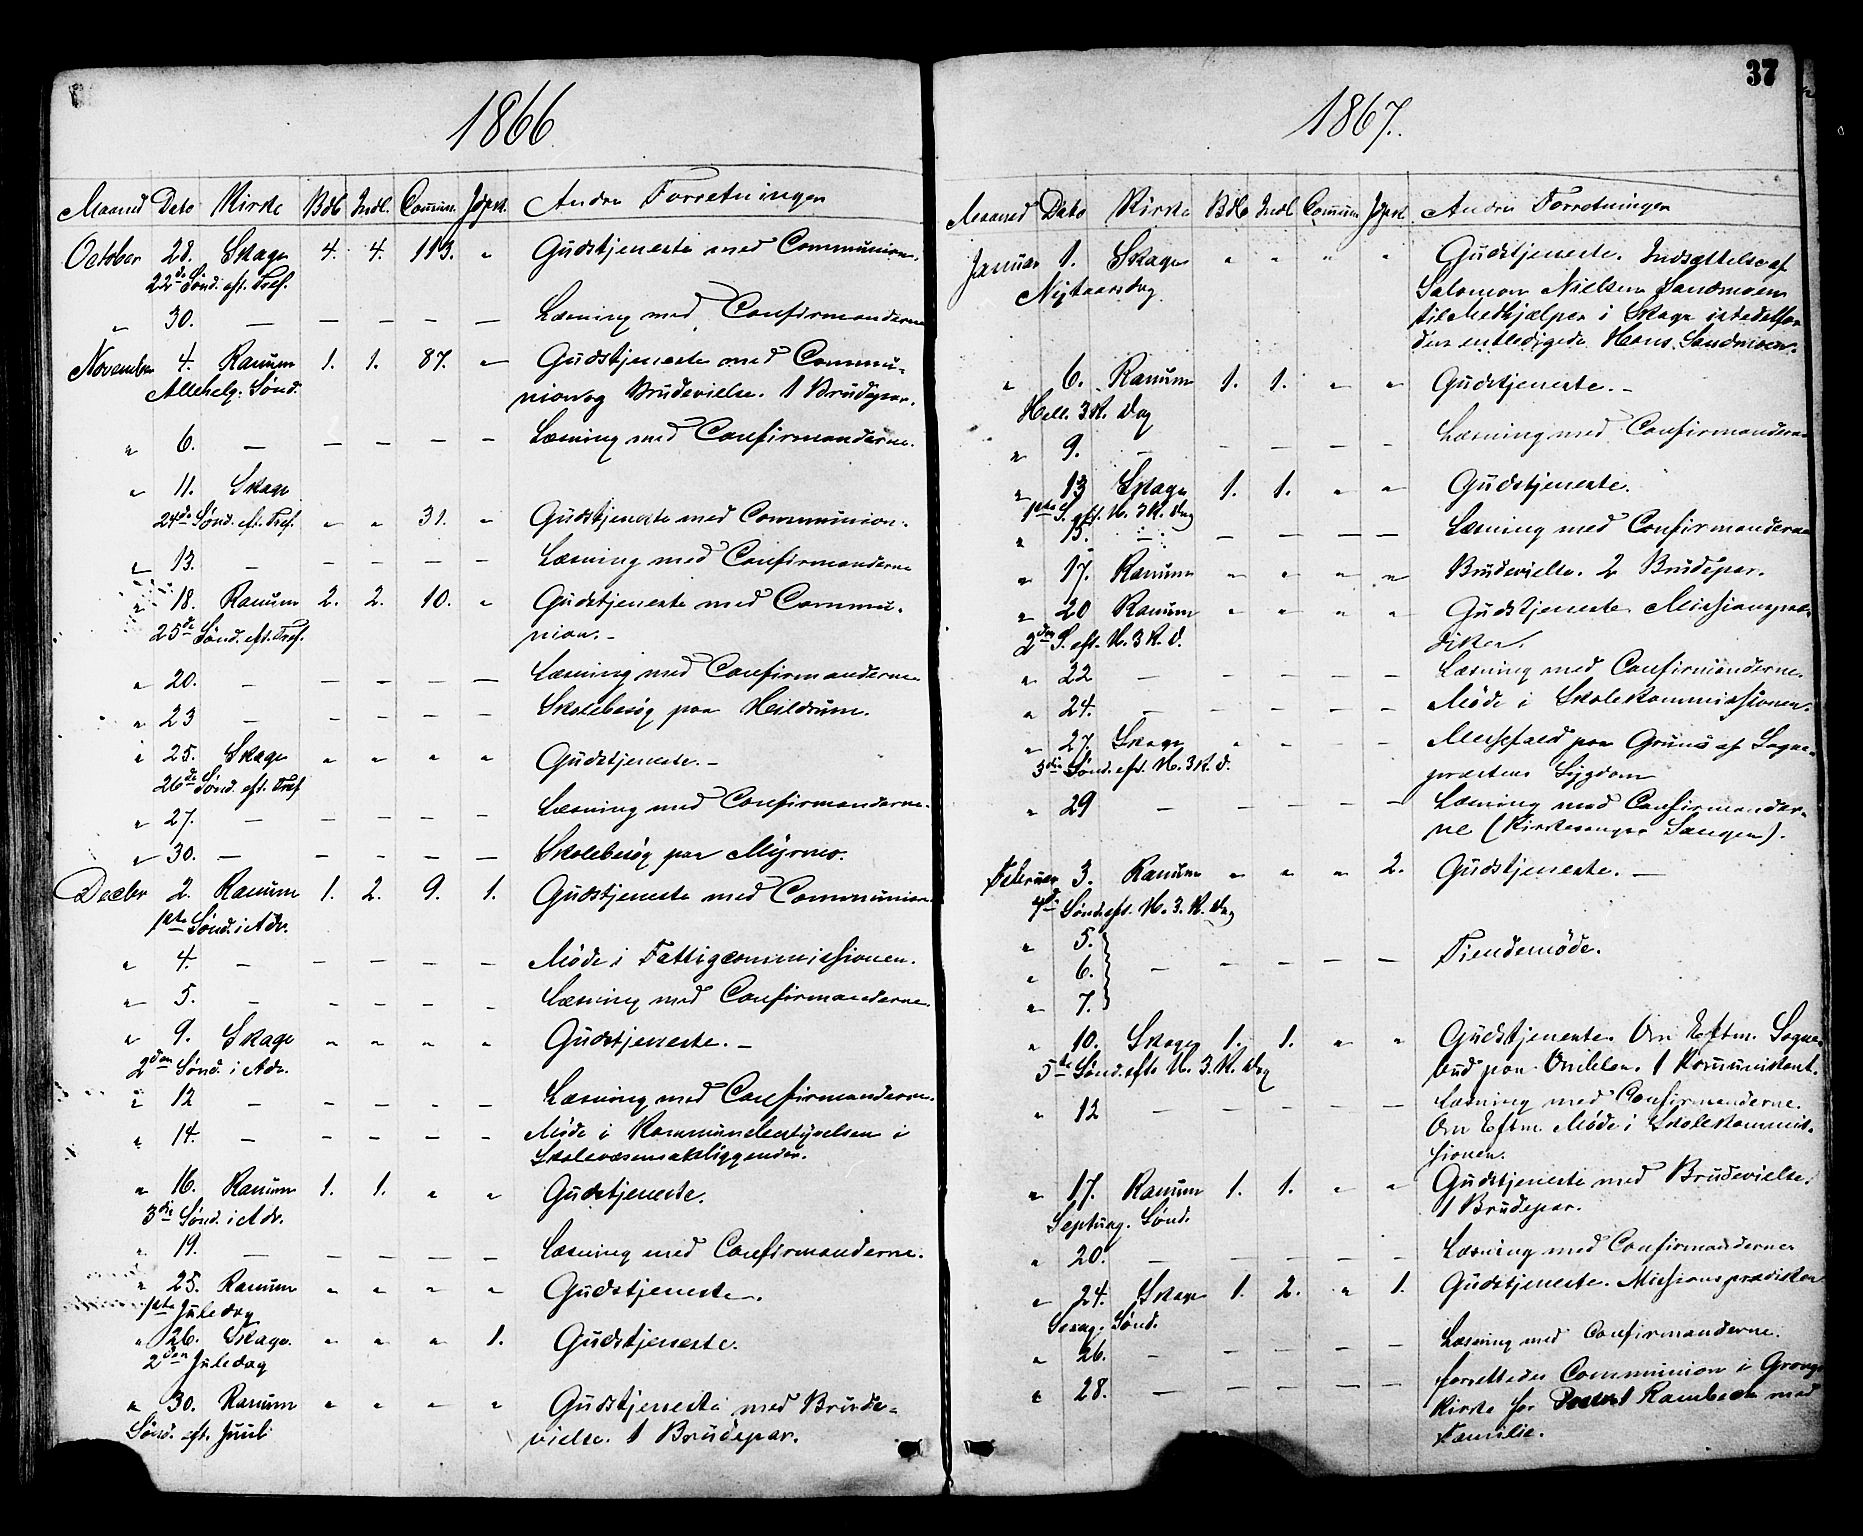 1866.
Maaned Dato Kirke Bdb Indl. Comm. Jdpst. Andre Forretninger
October 28. Skage 4. 4. 113. " Gudstjeneste med Communion.
22de Sönd. eft. Tref.
" 30. — — — — — Læsning med Confirmanderne
November 4. Ranum 1. 1. 87. " Gudstjeneste med Commu-
Allehelg. Sönd. nion og Brudevielse. 1 Brudepar.
" 6. — — — — — Læsning med Confirmanderne.
" 11. Skage
24de Sönd. eft. Tref. " " 31. " Gudstjeneste med Communion.
" 13. — — — — — Læsning med Confirmanderne
" 18. Ranum 2. 2. 10. " Gudstjeneste med Commu-
25de Sönd. eft. Tref. nion. -
" 20. — — — — — Læsning med Confirmanderne
" 23 — — — — — Skolebesög paa Heildrum.
" 25. Skage " " " " Gudstjeneste. -
26de Sönd. eft. Tref
" 27. — — — — — Læsning med Confirmanderne.
" 30. — — — — — Skolebesög paa Myrnes.
Decbr 2. Ranum 1. 2. 9. 1. Gudstjeneste med Communion
1ste Sönd. i Adv.
" 4. — — — — — Möde i Fattigcommissionen.
" 5. — — — — — Læsning med Confirmanderne.
" 9. Skage " " " " Gudstjeneste. -
2den Sönd. i Adv.
" 12 — — — — — Læsning med Confirmanderne.
" 14. — — — — — Möde i Kommunebestyrelsen i
Skolevæsensanliggender.
" 16. Ranum 1. 1. " " Gudstjeneste.
3die Sönd. i Adv.
" 19. — — — — — Læsning med Confirmanderne.
" 25. Ranum " " " " Gudstjeneste.
1ste Juledag
" 26. Skage. " " " 1. Gudstjeneste.
2den Juledag
" 30. Ranum " " " " Gudstjeneste med Brude-
Sönd. eft. Juul vielse. 1 Brudepar.
37
1867.
Maaned Dato Kirke Bdb Indl Comm Jdpst. Andre Forretninger
Januar 1. Skage " " " " Gudstjeneste. Indsættelse af
Nytaarsdag Salomon Nielsen Sandmoen
til Medhjælper i Skage istedetfor
den entledigede Hans Sandmoen.
" 6. Ranum 1. 1. " " Gudstjeneste. -
Hell. 3 K. Dag
" 9. — — — — — Læsning med Confirmanderne
" 13 Skage 1. 1. " " Gudstjeneste.
1ste S. eft. H. 3 K. Dag
" 15. — — — — — Læsning med Confirmanderne
" 17. Ranum " " " " Brudevielse. 2 Brudepar.
" 20 Ranum " " " " Gudstjeneste Missionspræ-
2den S. eft. H. 3 K. D. diken.
" 22 — — — — — Læsning med Confirmanderne.
" 24. — — — — — Möde i Skolekommissionen.
" 27. Skage " — — — Messefald paa Grund af Sogne-
3die Sönd. eft. H. 3 K. D. præstens Sygdom
" 29 — — — — — Læsning med Confirmander-
ne (Kirkesanger Saugen).
Februar 3. Ranum " " " 2. Gudstjeneste. —
4de Sönd. eft. H. 3. K. Dag
" 5.
" 6. — — — — — Tiendemöde.
" 7.
" 10. Skage 1. 1. " " Gudstjeneste. Om Eftm. Sogne-
5te Sönd. eft. H. 3. K. Dag bud paa . 1 Kommunikant.
" 12 — — — — — Læsning med Confirmanderne.
Om Eftm Möde i Skolekommis-
sionen.
" 17. Ranum 1. 1. " " Gudstjeneste med Brudevielse,
Septuag. Sönd. 1 Brudepar.
" 20. — — — — — Læsning med Confirmanderne
" 24. Skage 1. 2. " 1. Gudstjeneste. Missionsprædiken
Sexag. Sönd.
" 26. — — — — — Læsning med Confirmanderne.
" 28. — — — — — forrettedes Communion i Grong
Kirke for Provst Rambech med
Familie.